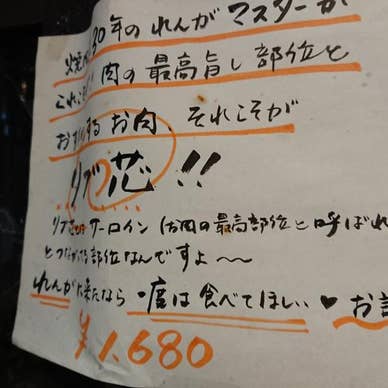 焼肉30年のれんがマスターが
これぞ!! 肉の最高旨し部位と
おすすめするお肉、それこそが
リブ芯!!
リブ芯はサーロイン(お肉の最高部位と呼ばれ
とつながってる部位なんですよ〜
れんがに来たなら一度は食べてほしい♥お
¥1,680